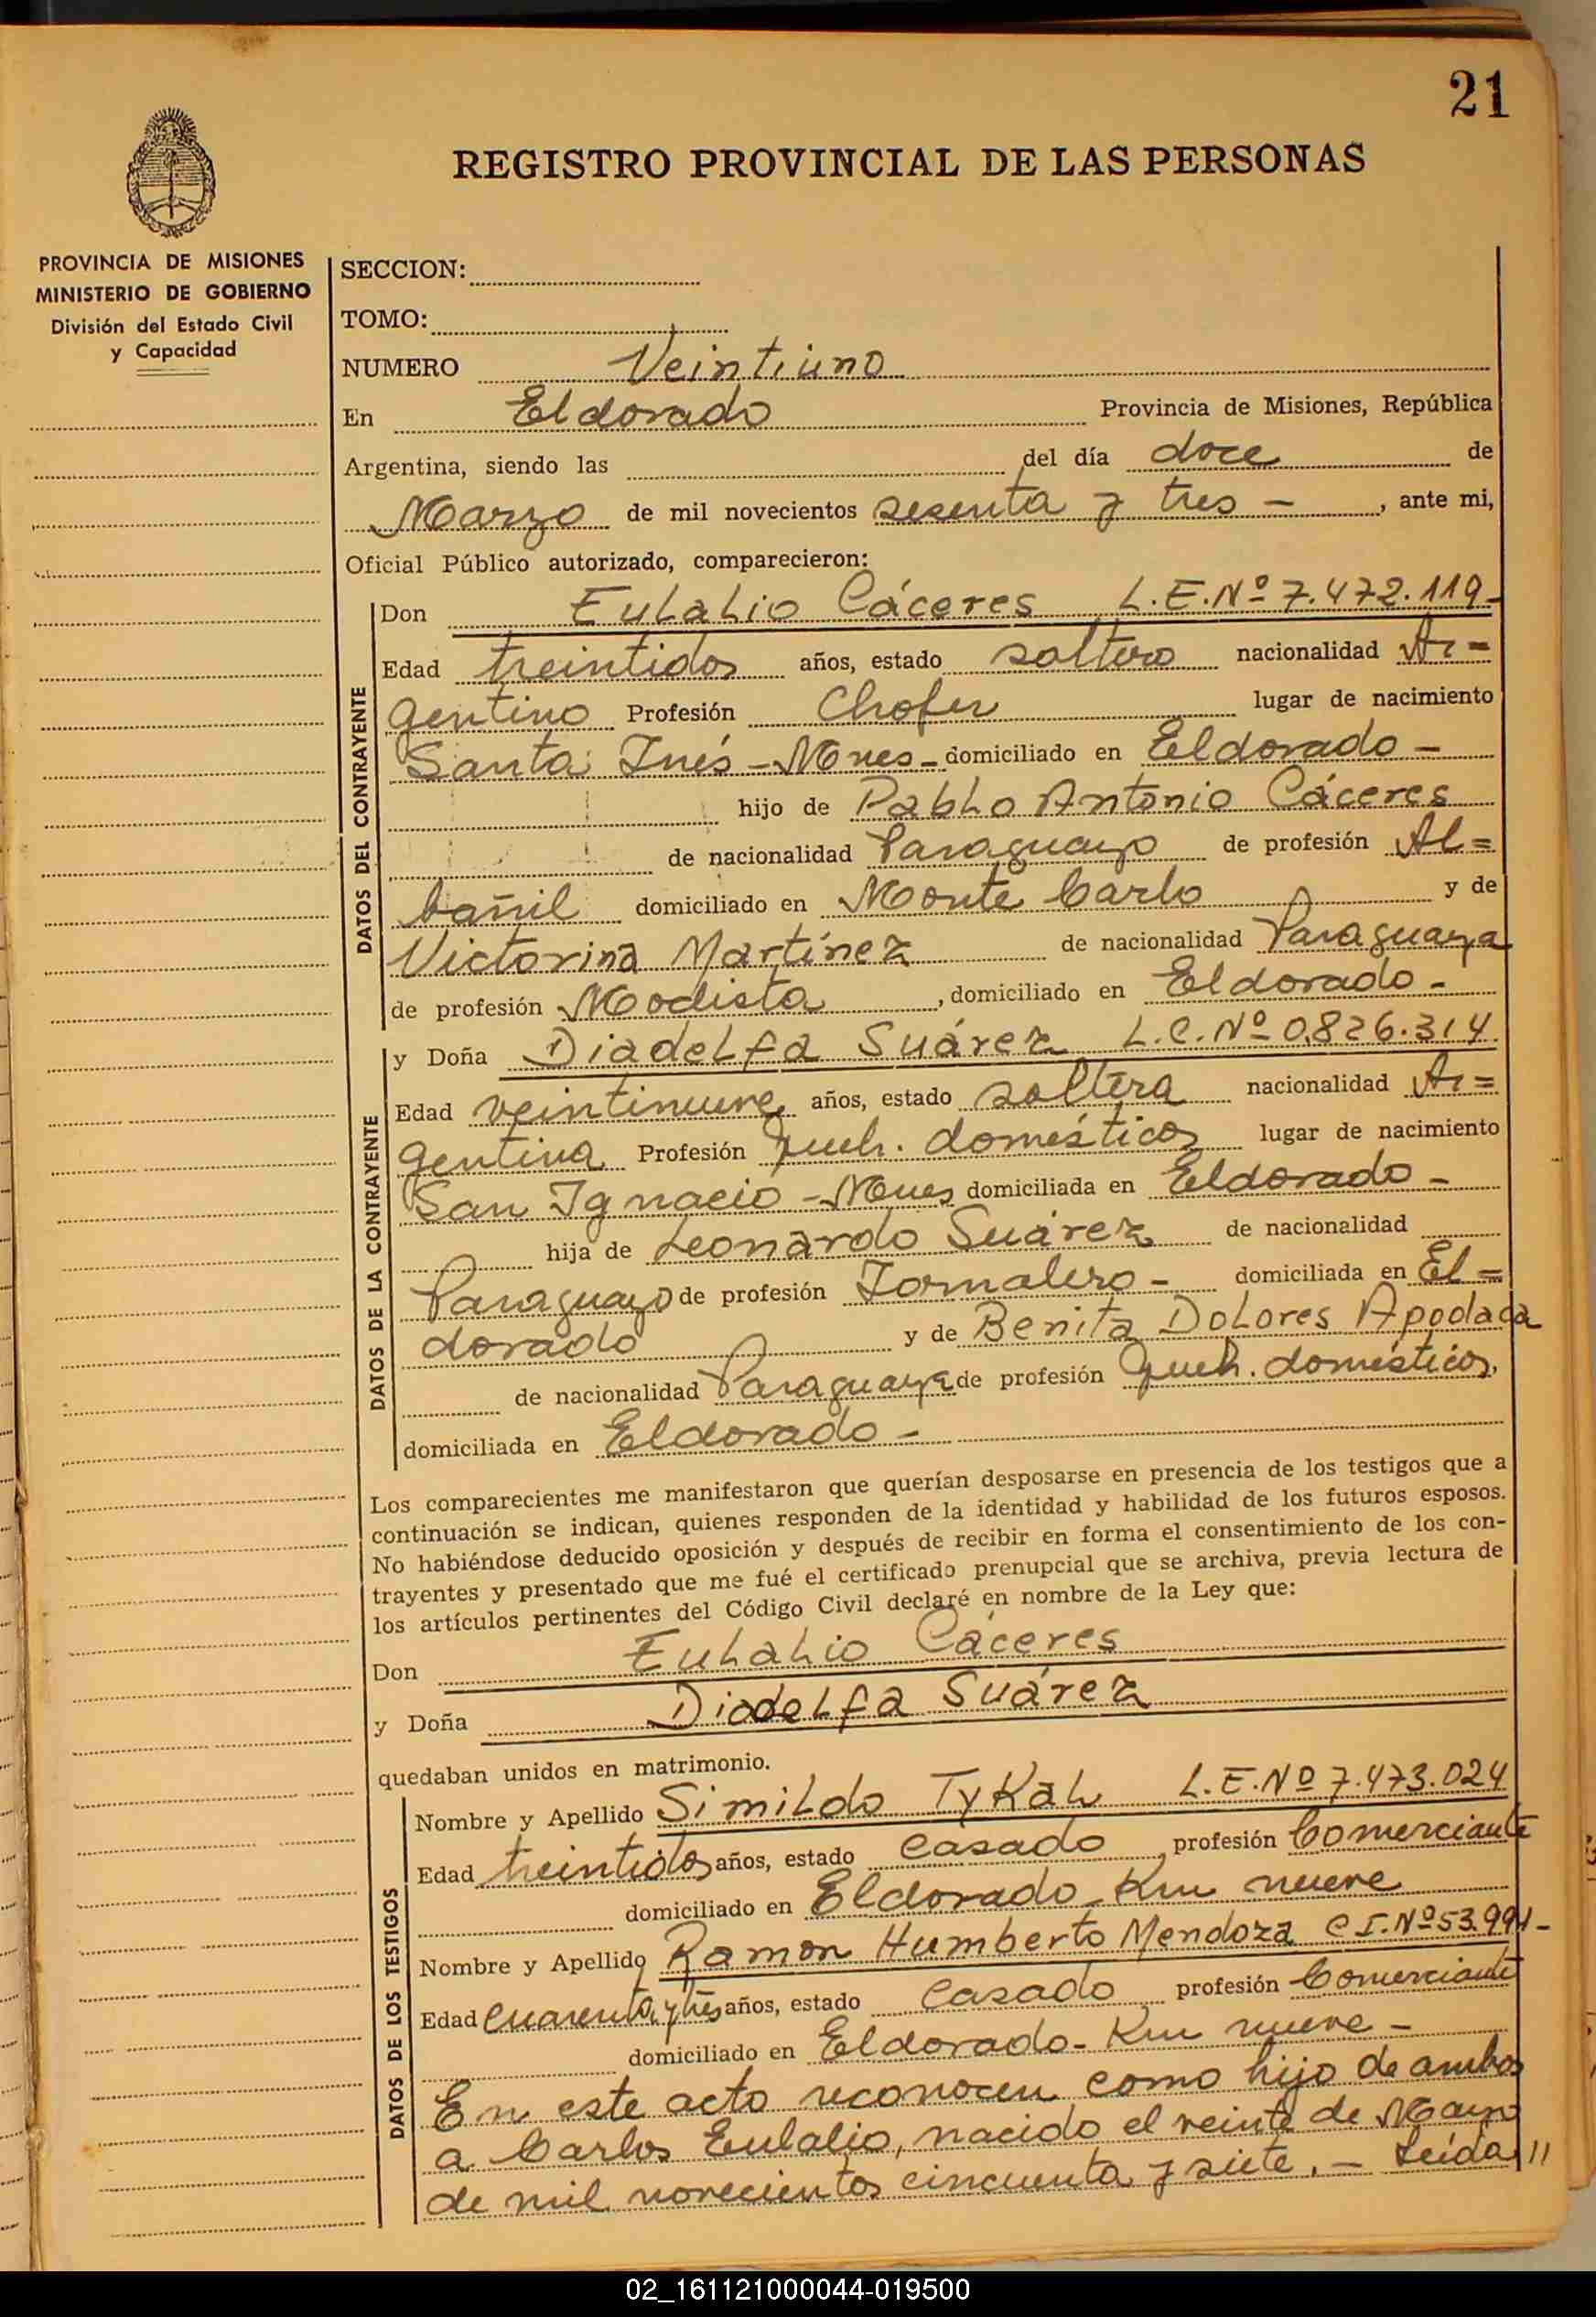 21
REGISTRO PROVINCIAL DE LAS PERSONAS
PROVINCIA DE MISIONES
MINISTERIO DE GOBIERNO
División del Estado Civil
y Capacidad
SECCION:
TOMO:
NUMERO Veintiuno
En Eldorado Provincia de Misiones, República
Argentina, siendo las del día doce de
Marzo de mil novecientos sesenta y tres - , ante mi,
Oficial Público autorizado, comparecieron:
DATOS DEL CONTRAYENTE
Don Eulalio Cáceres L.E.Nº 7.472.119-
Edad treintidos años, estado soltero nacionalidad Ar=
gentino Profesión Chofer lugar de nacimiento
Santa Inés - Mnes - domiciliado en Eldorado -
hijo de Pablo Antonio Cáceres
de nacionalidad Paraguayo de profesión Al=
bañil domiciliado en Monte Carlo y de
Victorina Martínez de nacionalidad Paraguaya
de profesión Modista , domiciliado en Eldorado -
DATOS DE LA CONTRAYENTE
y Doña Diadelfa Suárez L.C.Nº 0.826.314
Edad veintinueve años, estado soltera nacionalidad Ar=
gentina Profesión Queh. domésticos lugar de nacimiento
San Ignacio - Mnes domiciliada en Eldorado -
hija de Leonardo Suárez de nacionalidad
Paraguayo de profesión Jornalero - domiciliada en El=
dorado y de Benita Dolores Apodaca
de nacionalidad Paraguaya de profesión Queh. domésticos,
domiciliada en Eldorado -
Los comparecientes me manifestaron que querían desposarse en presencia de los testigos que a
continuación se indican, quienes responden de la identidad y habilidad de los futuros esposos.
No habiéndose deducido oposición y después de recibir en forma el consentimiento de los con-
trayentes y presentado que me fué el certificado prenupcial que se archiva, previa lectura de
los artículos pertinentes del Código Civil declaré en nombre de la Ley que:
Don Eulalio Cáceres
y Doña Diadelfa Suárez
quedaban unidos en matrimonio.
DATOS DE LOS TESTIGOS
Nombre y Apellido Simildo Tykal L.E.Nº 7.473.024
Edad treintidos años, estado casado , profesión Comerciante
domiciliado en Eldorado Km nueve
Nombre y Apellido Ramon Humberto Mendoza C.I.Nº 53.991-
Edad cuarenta y tres años, estado casado profesión Comerciante
domiciliado en Eldorado - Km nueve -
En este acto reconocen como hijo de ambos
a Carlos Eulalio, nacido el veinte de Mayo
de mil novecientos cincuenta y siete. - Leída //
02_161121000044-019500